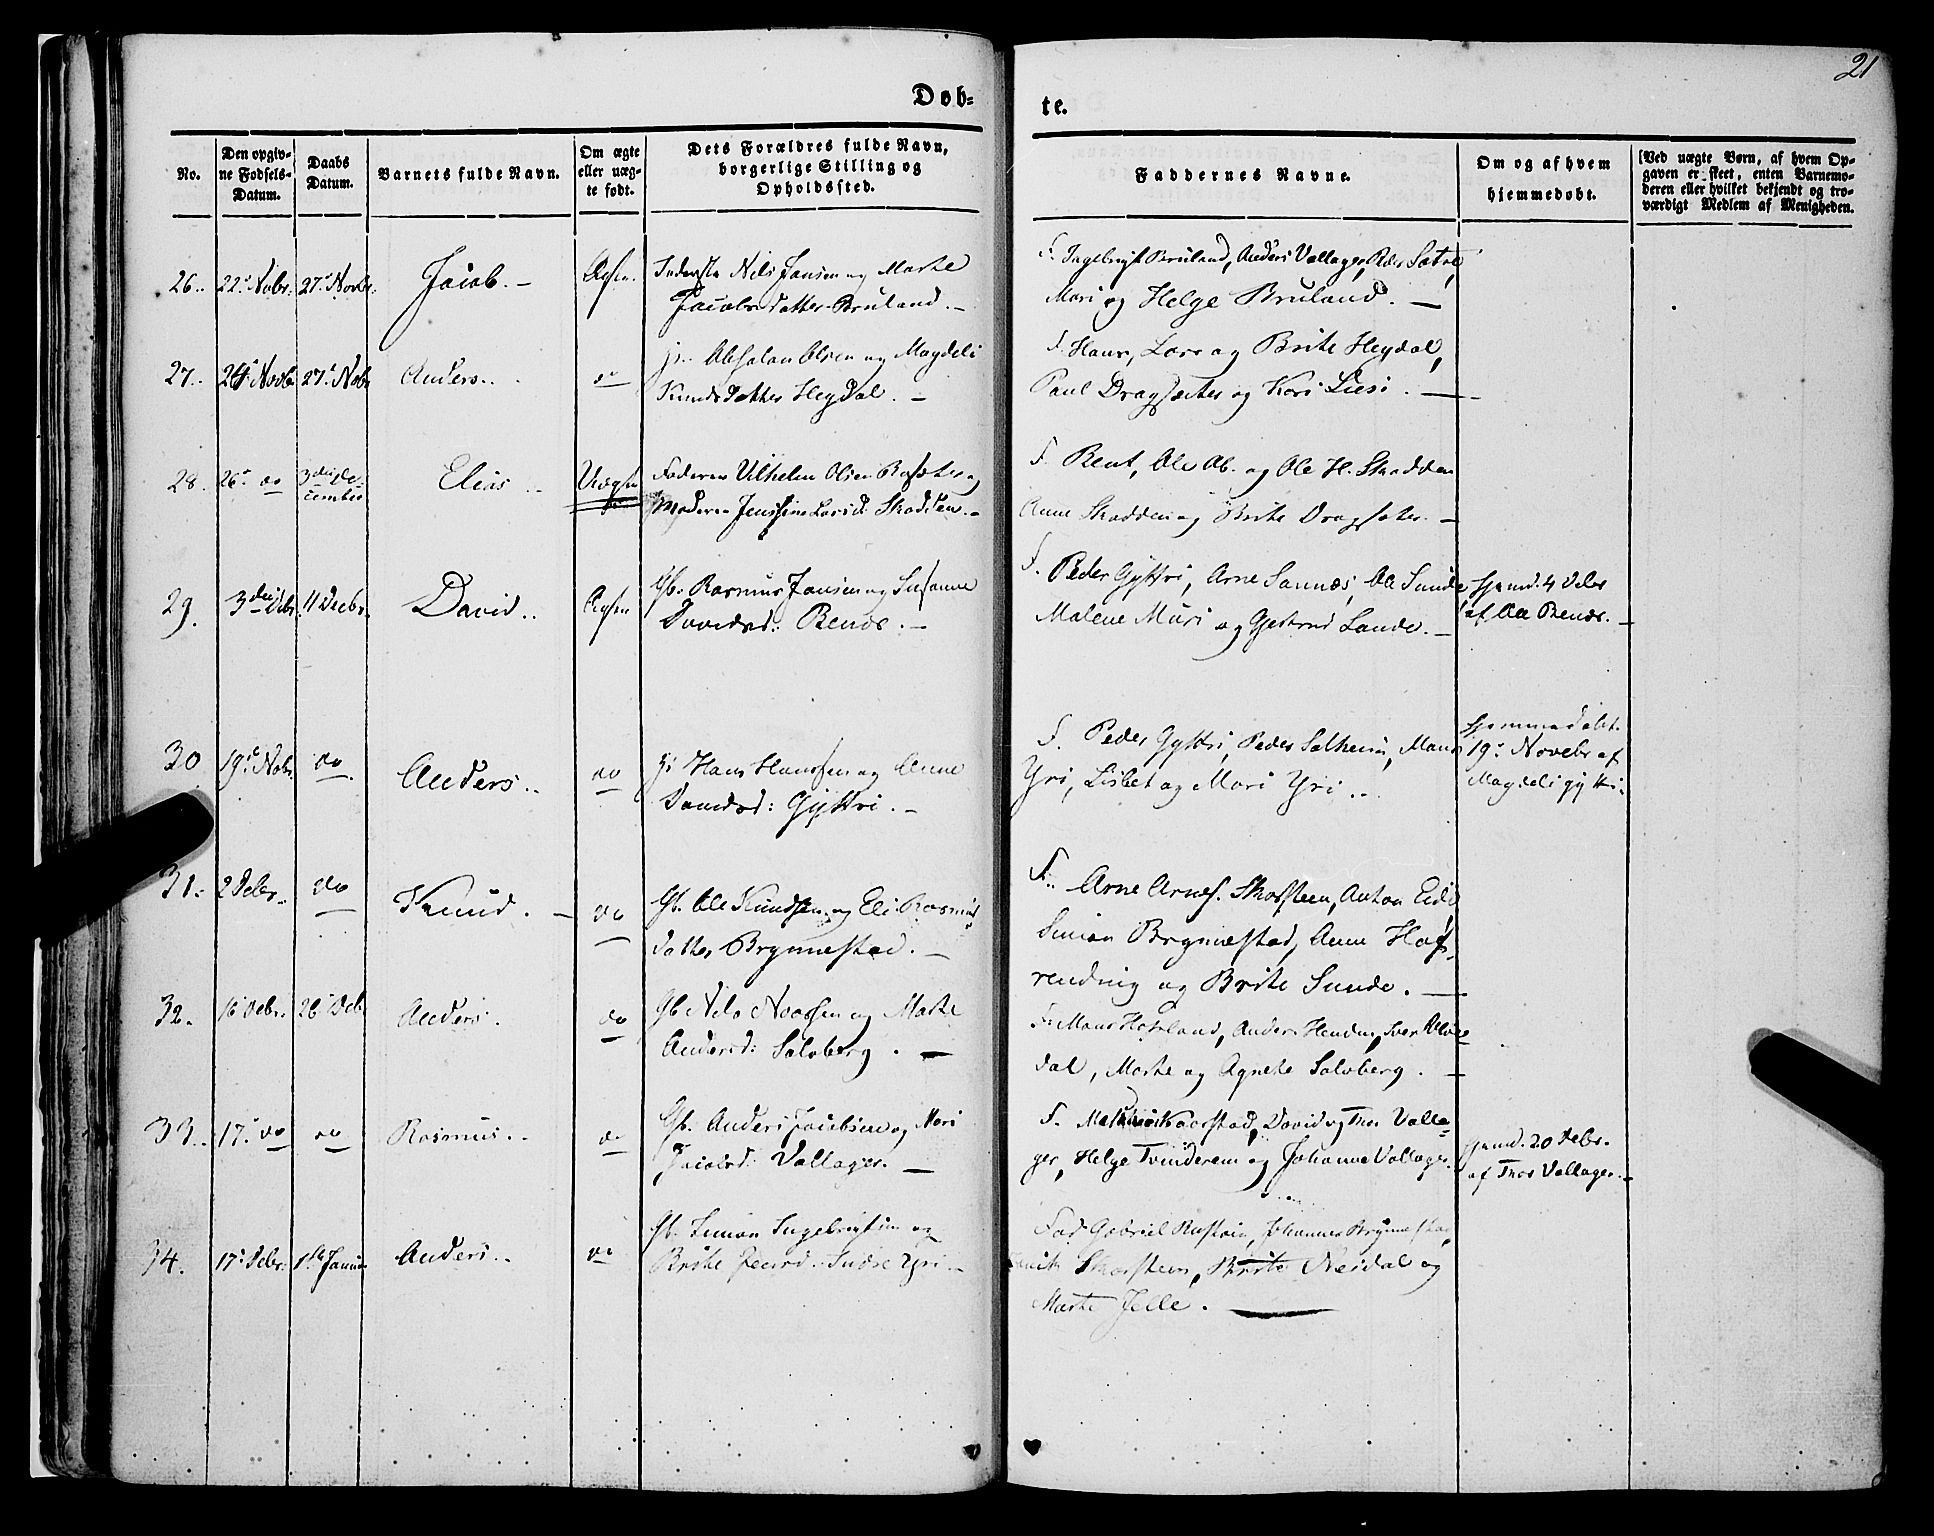 21
Døb-
te.
No.
Den opgiv-
ne Fødsels-
Datum.
Daabs
Datum.
Barnets fulde Navn.
Om ægte
eller uæg-
te født.
Dets Forældres fulde Navn,
borgerlige Stilling og
Opholdssted.
Faddernes Navne.
Om og af hvem
hjemmedøbt.
(Ved uægte Børn, af hvem Op-
gaven er skeet, enten Barnemo-
deren eller hvilket bekjendt og tro-
værdigt Medlem af Menigheden.
26. 22. Nobr. 27. Novbr. Jacob. Ægte. Inderste Nils Jansen og Marte
Jacobsdatter Bruland.
F. Ingebrigt Bruland, Anders Vallager, Peder Sætre,
Mari og Helge Bruland.
27. 24. Novb. 27. Nobr Anders. do Absalon Olsen og Magdeli
Knudsdatter Hegdal.
F. Hans, Lars og Brite Hegdal,
Paul Dragsæter og Kari Liesi.
28. 26. do 3die De-
cember
Elias Uægte Faderen Vilhelm Olsen og
Moderen Jensine Larsd. Skadden.
F. Bent, Ole Ab. og Ole H. Skadden
Anne Skadden og Brite Dragsæter.
29. 3die Debr. 11 Decbr. David. Ægte Gb. Rasmus Jansen og Susanne
Davidsd: Benes.
F. Peder Gyttri, Arne Sannæs, Ole Sunde
Malene Muri og Gjertrud Lunde.
Hjemd. 4 Debr
af Benes.
30 19. Nobr. do Anders. do Hans Hanssen og Anne
Danielsd: Gyttri.
F. Peder Gyttri, Peder Solheim, Mans
Yri, Lisbet og Mari Yri.
Hjemmedøbt
19. Novebr af
Magdeli Gyttri.
31. 2 Debr. do Knud. do Gb. Ole Knudsen og Eli Rasmus
datter Brynnestad.
F. Arne Arnes. Skarsteen, Anton Eide
Simon Brynnestad, Anne
og Brite Sunde.
32. 16 Debr. 26. Deb. Anders. do Gb Nils Noassen og Marte
Andersd: Solvberg.
F. Mons Anders
dal, Marte og Agnete Solvberg.
33. 17. do do Rasmus. do Gb. Anders Jacobsen og Mari
Jacobsd: Vallager.
F. David og Thor Valla-
ger, Helge Tvinderem og Johanne Vallager.
Hjemd. 20 Debr.
af Thor Vallager.
34. 17. Debr. 1ste Januar Anders. do Gb. Simon Ingebrigtsen og
Brite Indre Yri.
Fad. Gabriel Johannes Brynnestad,
Skarsteen, Brite Nesdal og
Marte Jelle.